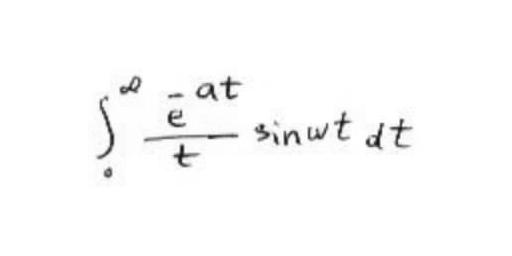 ∫₀^∞ e^{-at}/t sin ωt dt